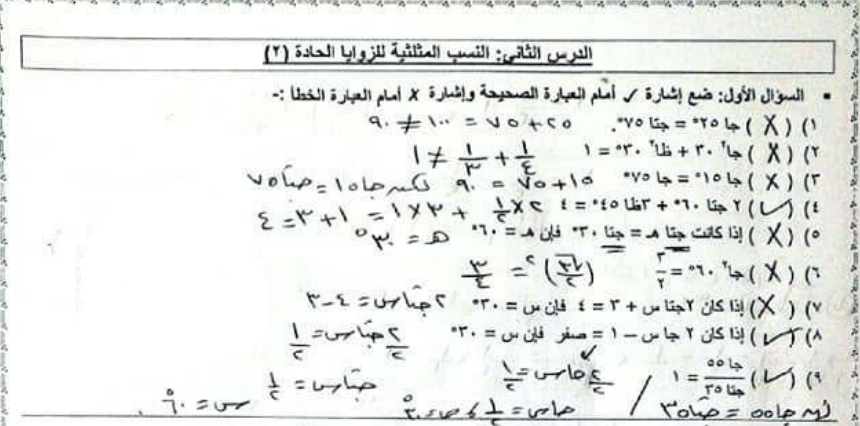 الدرس الثاني: النسب المثلثية للزوايا الحادة (٢)
▪ السؤال الأول: ضع إشارة ✓ أمام العبارة الصحيحة وإشارة ✗ أمام العبارة الخطأ :-
١) (X) جا ٢٥° = جتا ٧٥°. ٢٥ + ٧٥ = ١٠٠ ≠ ٩٠
٢) (X) جا٢ ٣٠ + ظا٢ ٣٠° = ١ ١/٤ + ١/٣ ≠ ١
٣) (X) جا ١٥° = جا ٧٥° ١٥ + ٧٥ = ٩٠ لكن جا ١٥ = جتا ٧٥
٤) (✓) ٢ جتا ٦٠° + ٣ظا ٤٥° = ٤ ٢ × ١/٢ + ٣ × ١ = ١ + ٣ = ٤
٥) (X) إذا كانت جتا هـ = جتا ٣٠° فإن هـ = ٦٠° هـ = ٣٠°
٦) (X) جا٢ ٦٠° = ٣/٢ (√٣/٢)٢ = ٣/٤
٧) (X) إذا كان ٢جتا س + ٣ = ٤ فإن س = ٣٠° ٢ جتا س = ٤ - ٣
٨) (✓) إذا كان ٢ جا س – ١ = صفر فإن س = ٣٠° ٢/٢ جتا س = ١/٢
٩) (✓) جا ٥٥ / جتا ٣٥ = ١ ٢/٢ جا س = ١/٢ ✓ جتا س = ١/٢
جا ٥٥ = جتا ٣٥ / جا س = ١/٢ س = ٣٠° س = ٦٠°